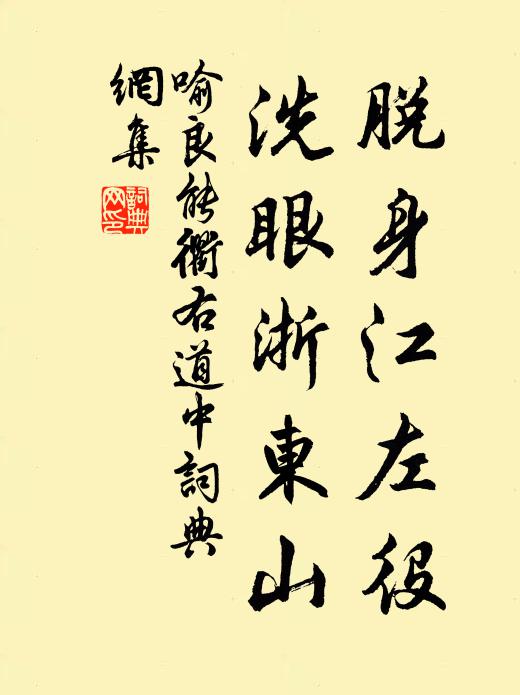 脱身江左役
洗眼浙東山
喻良能衢右道中詞典
網集
詞典
網印